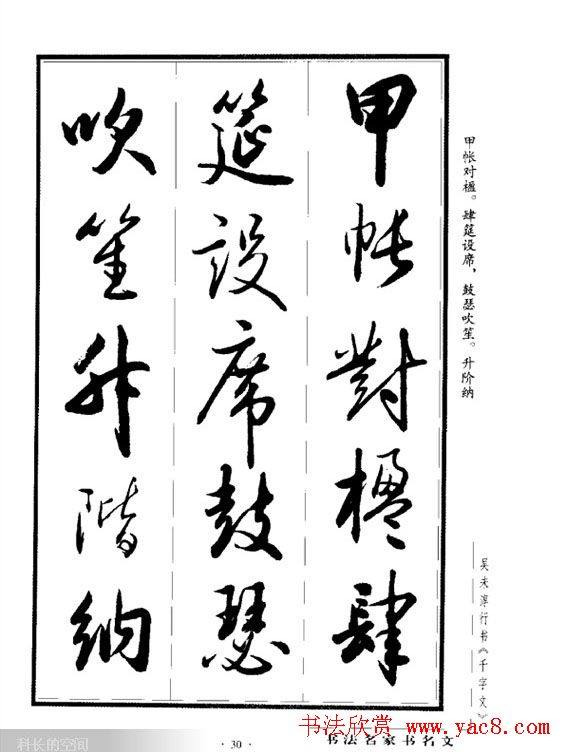 甲帐對楹肆
筵设席鼓瑟
吹笙升階纳
甲帐对楹。肆筵设席，鼓瑟吹笙。升阶纳
吴未淳行书《千字文》
科长的空间
· 30 ·
书法名家书名文
书法欣赏 www.yac8.com